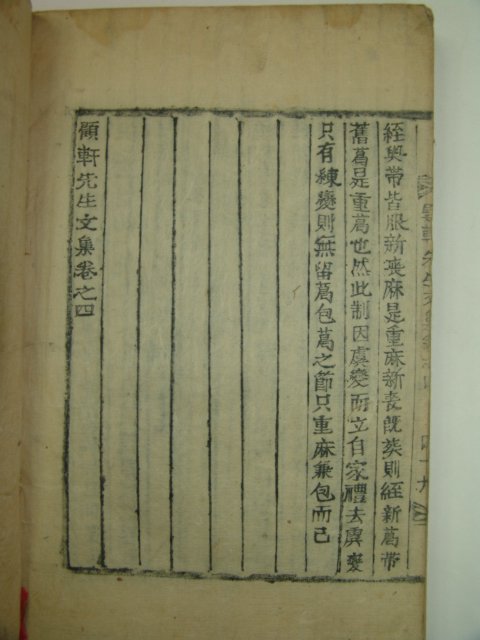 絰與帶皆服新喪麻是重麻新喪旣葬則絰新葛帶
舊葛是重葛也然此制因虞變而立自家禮去虞變
只有練變則無留葛包葛之節只重麻兼包而已
顧軒先生文集卷之四